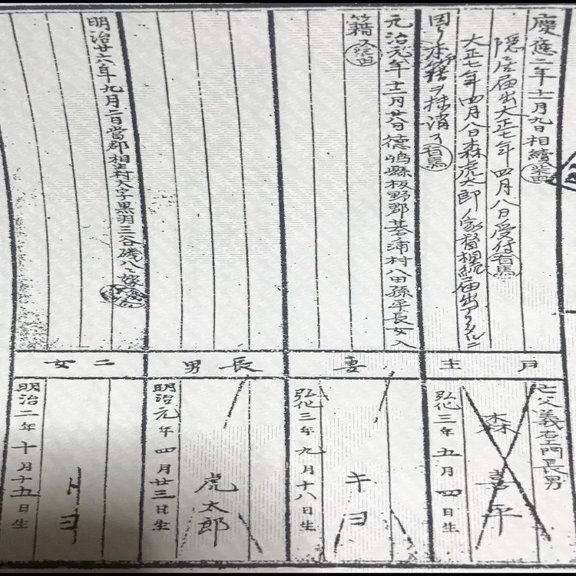 慶應二年十一月九日相續
隠居届出大正七年四月八日受付
大正七年四月八日森虎太郎ノ家督相続届出アリタルニ
因リ本籍ヲ抹消ス
戸主
亡父義右ヱ門長男
森喜平
弘化三年五月四日生
元治元年十二月廿八日徳島縣板野郡碁浦村八田孫平長女入
籍
妻
キヨ
弘化三年九月十八日生
長男
虎太郎
明治元年四月廿三日生
明治廿六年九月二日當郡相生村大字黒羽三谷磯八ニ嫁
二女
トヨ
明治二年十月十五日生